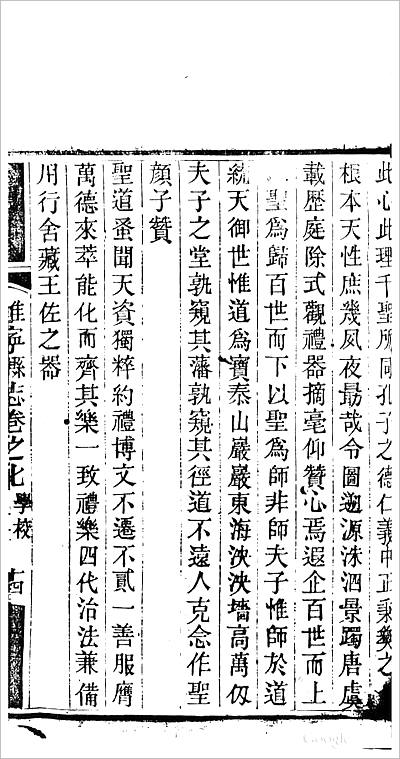 此心此理千聖所同孔子之德仁義中正秉彝之
根本天性庶幾夙夜勗哉令圖遡源洙泗景躅唐虞
載歷庭除式觀禮器摘毫仰贊心焉遐企百世而上
聖為歸百世而下以聖為師非師夫子惟師於道
統天御世惟道為寶泰山巖巖東海泱泱墻高萬仭
夫子之堂孰窺其藩孰窺其徑道不遠人克念作聖
顏子贊
聖道蚤聞天資獨粹約禮博文不遷不貳一善服膺
萬德來萃能化而齊其樂一致禮樂四代治法兼備
用行舍藏王佐之器
睢寧縣志卷之七 學校 十四
Google